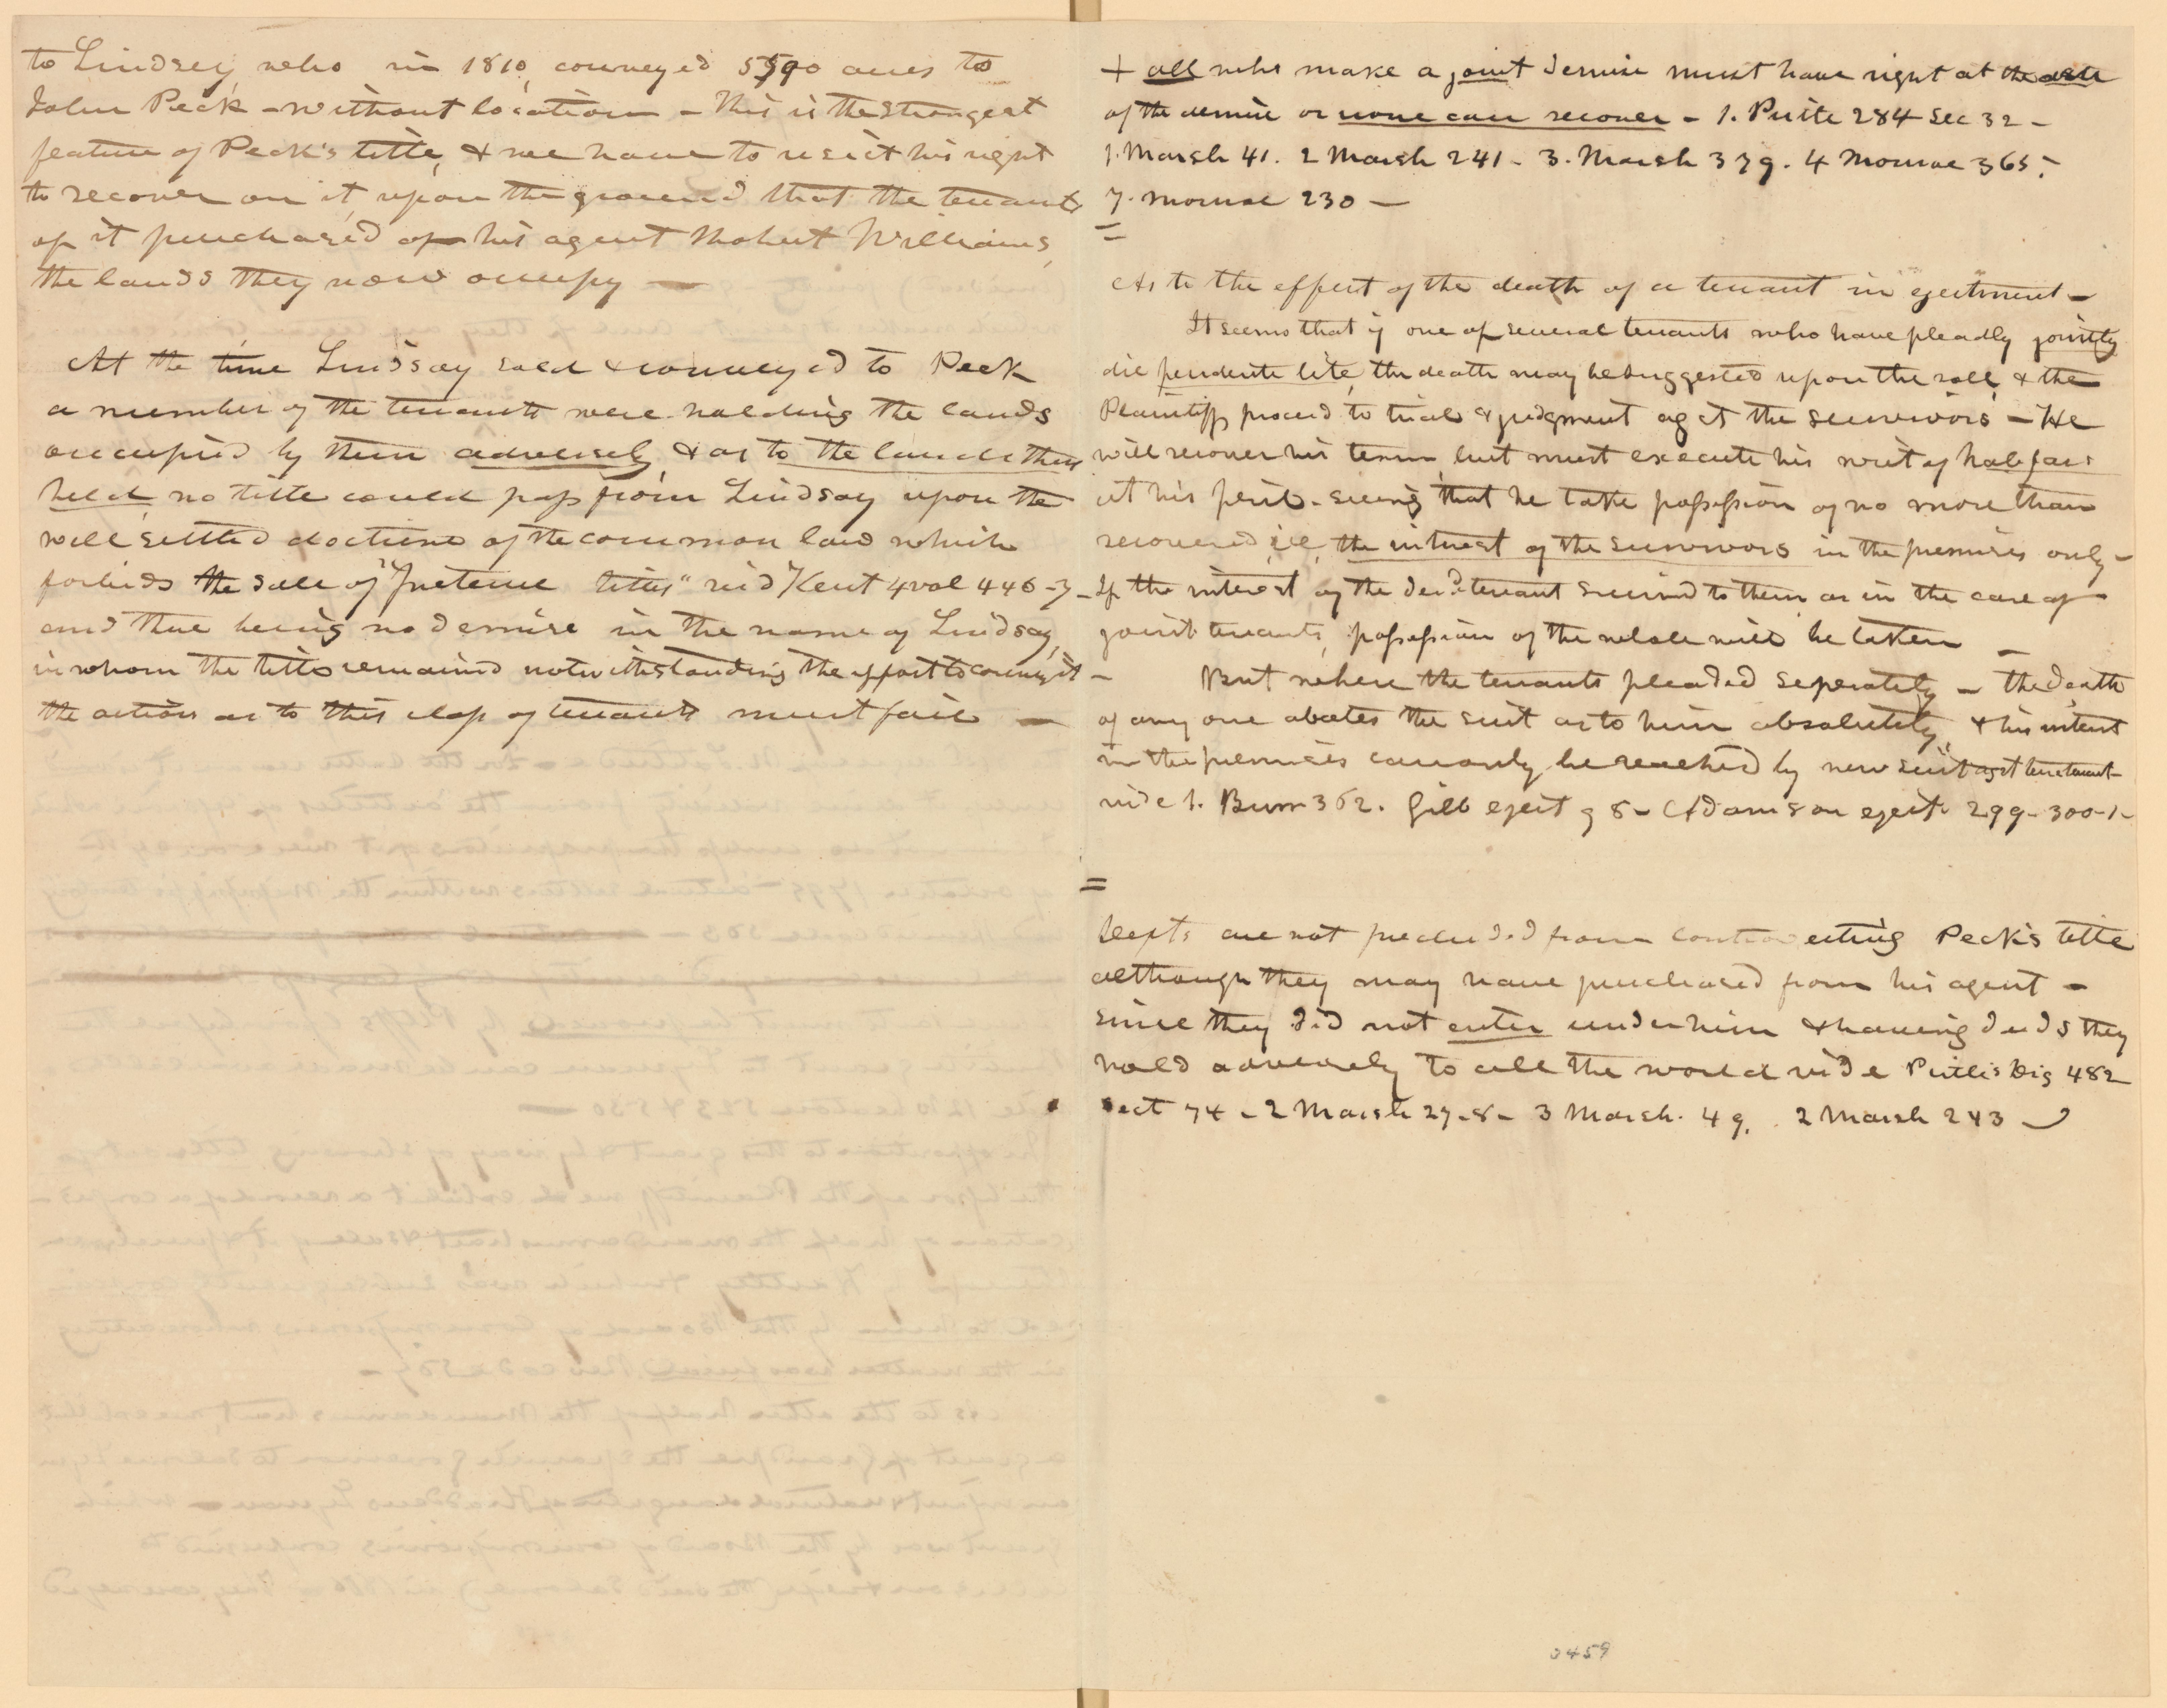 to Lindsey who in 1810, conveyed 5590 acres to
John Peck - without location - This is the strongest
feature of Peck's title, & we have to resist his right
to recover on it, upon the ground that the tenants
of it purchased of his agent Robert Williams,
the lands they now occupy —
At the time Lindsay sold & conveyed to Peck
a number of the tenants were holding the lands
occupied by them adversely, & as to the lands thus
held no title could pass from Lindsay upon the
well settled doctrine of the common law which
forbids the sale of "pretence titles" vid Kent 4 vol 446-7-
and there being no demise in the name of Lindsay,
in whom the title remained notwithstanding the effort to convey it -
the action as to this class of tenants must fail —
+ all who make a joint demise must have right at the date
of the demise or none can recover - 1. Pirtle 284 Sec 32 -
1. Marsh 41. 2 Marsh 241 - 3. Marsh 379. 4 Monroe 365.-
7. Monroe 230 —
=
As to the effect of the death of a tenant in ejectment -
It seems that if one of several tenants who have pleadly jointly
die pendente lite, the death may be suggested upon the roll, & the
Plaintiff proceed to trial & judgment agst the survivors - He
will recover his term, but must execute his writ of hab fac:
at his peril - seeing that he take possession of no more than
recovered, i,e, the interest of the survivors in the premises only -
If the interest of the decd tenant survived to them as in the case of
joint tenants, possession of the whole will be taken —
But where the tenants pleaded seperately - the death
of any one abates the suit as to him absolutely, & his interest
in the premises can only be reached by new suit agst tertenant -
vide 1. Burr 362. Gilb eject 98 - Adams on eject. 299-300-1-
=
Defts are not precluded from controverting Peck's title
although they may have purchased from his agent -
since they did not enter under him & having deeds they
hold adversely to all the world vide Pirtle's Dig 482
sect 74 - 2 Marsh 27-8 - 3 Marsh. 49. 2 Marsh 243
3459